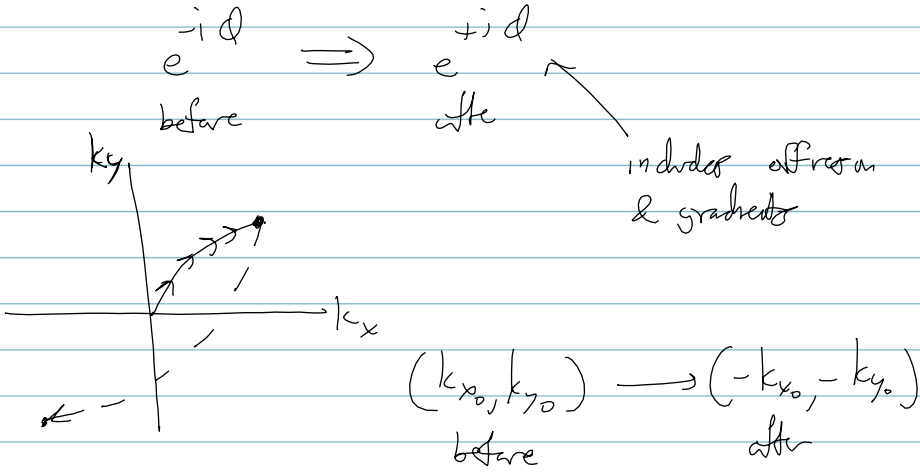 e^{-iφ} ⇒ e^{+iφ}
before after
includes off reson
& gradients
ky
kx
(k_{x_0}, k_{y_0}) → (-k_{x_0}, -k_{y_0})
before after